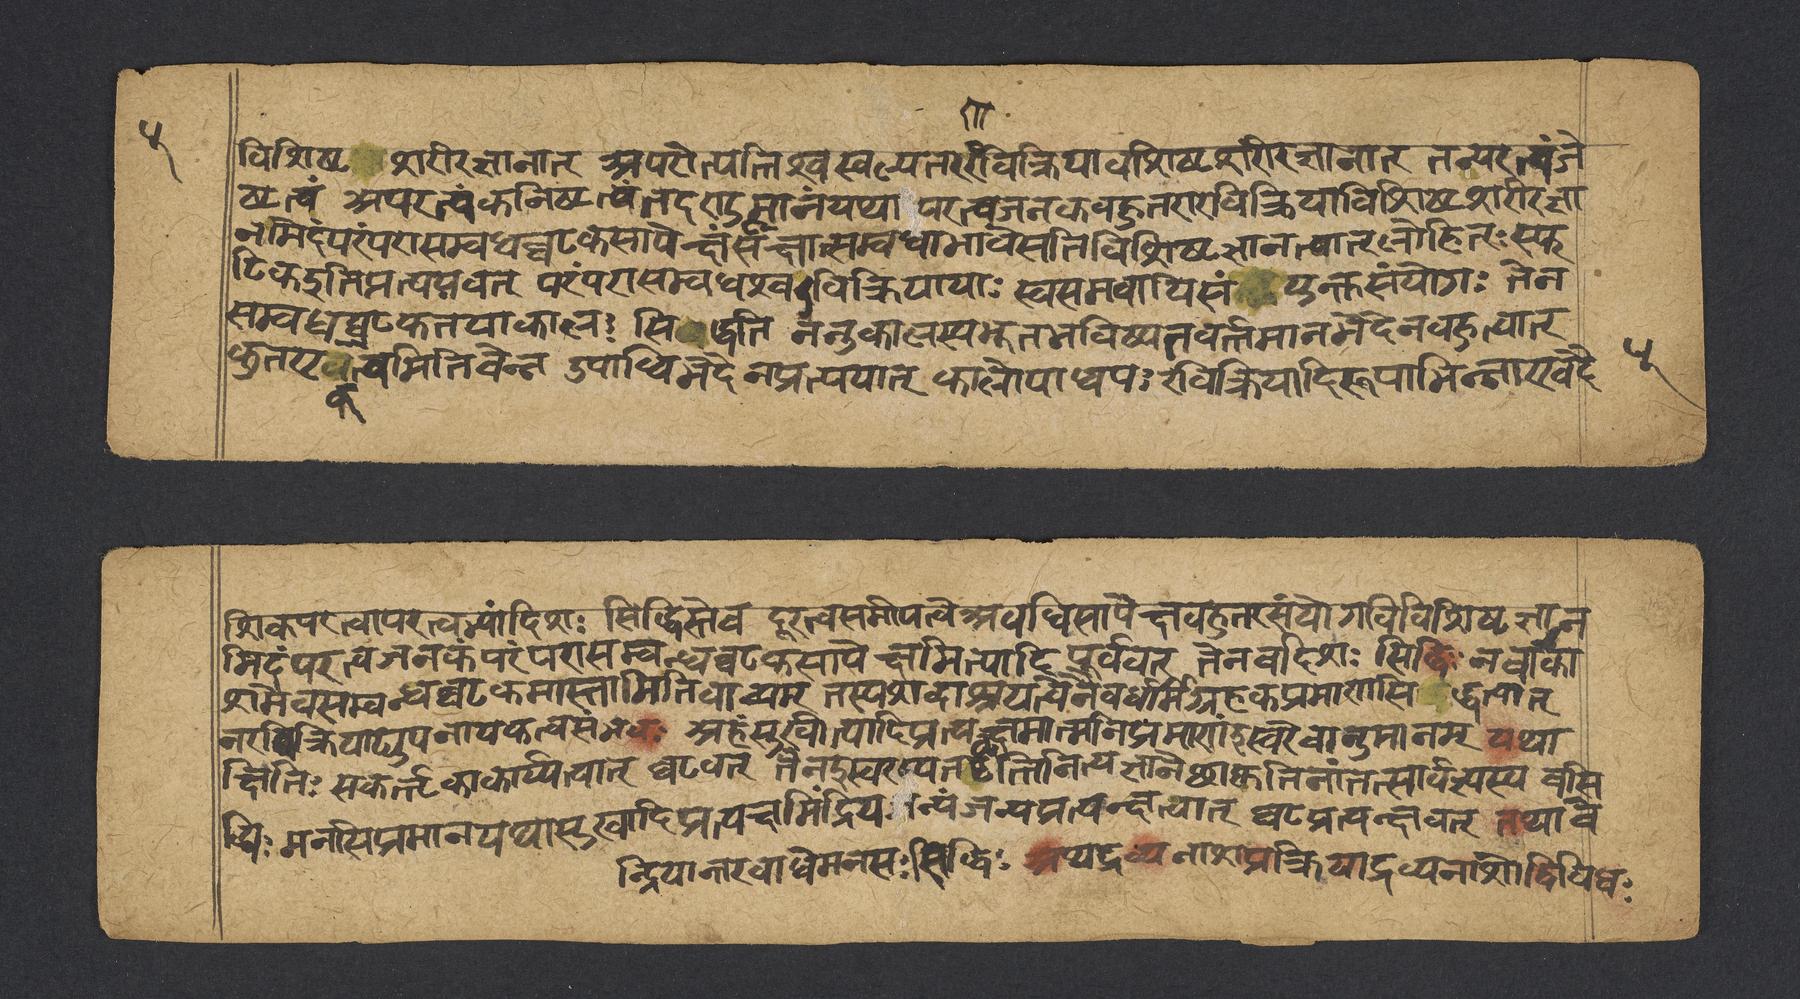 रा
५
विशिष्ट शरीरज्ञानात् अपरोत्पत्तिश्च स्वल्पेतररविक्रियावशिष्टशरीरज्ञानात् तत्परत्वं जे
ष्टत्वं अपरत्वं कनिष्टत्वं तदरानुमानं यथा परत्वजनकवहुतररविक्रियाविशिष्टशरीरज्ञा
नमिदं परंपरासम्वधघटकसापेक्षं साक्षात्सम्वधाभावे सति विशिष्टज्ञानत्वात् लोहितः स्फ
टिक इति प्रत्ययवत् परंपरासम्वधश्च रविक्रियायाः स्वसमवायिसं युक्तसंयोगः तेन
सम्वधघटकतया कालः सि द्धति ननु कालस्य भूतभविष्यतवर्तमानभेदेन वहुत्वात्
कुत एवत्वमिति चेन्न उपाधिभेदेन प्रत्ययात् कालोपाधयः रविक्रियादिरूपा भिन्ना एव दै
क
५
शिकपरत्वापरत्वभ्यां दिशः सिद्धिस्तेव दूरत्वसमीपत्वे अवधिसापेक्षवहुतरसंयोगविविशिष्टज्ञान
मिदं परत्वजनकं परंपरासम्वन्धघटकसापेक्षमित्यादि पूर्ववत् तेन च दिशः सिद्धिः न चाका
शमेव सम्वन्धघटकमास्तामिति वाच्यम् तस्य शब्दाश्रयत्वेनैव धर्मिग्राहकप्रमाणसि द्धत्वात्
न रविक्रियाद्युपनायकत्वसंभवः अहं सुखीत्यादिप्रत्यक्षमात्मनि प्रमाणं इस्वरे चानुमानम् यथा
क्षितिः सकर्तृका कार्य्यत्वात् घटवत् तेन इस्वरस्य त त्तिनित्यज्ञानेछाकृतिमतः सार्वज्ञ्यस्य च सि
द्धिः मनसि प्रमानं यथा सुखादिप्रत्यक्षमिंद्रियजन्यं जन्यप्रत्यक्षत्वात् घटप्रत्यक्षवत् तथा चे
न्द्रियान्तरवाधे मनसः सिद्धिः अथ द्रव्यनाशप्रक्रिया द्रव्यनाशो द्विविधः